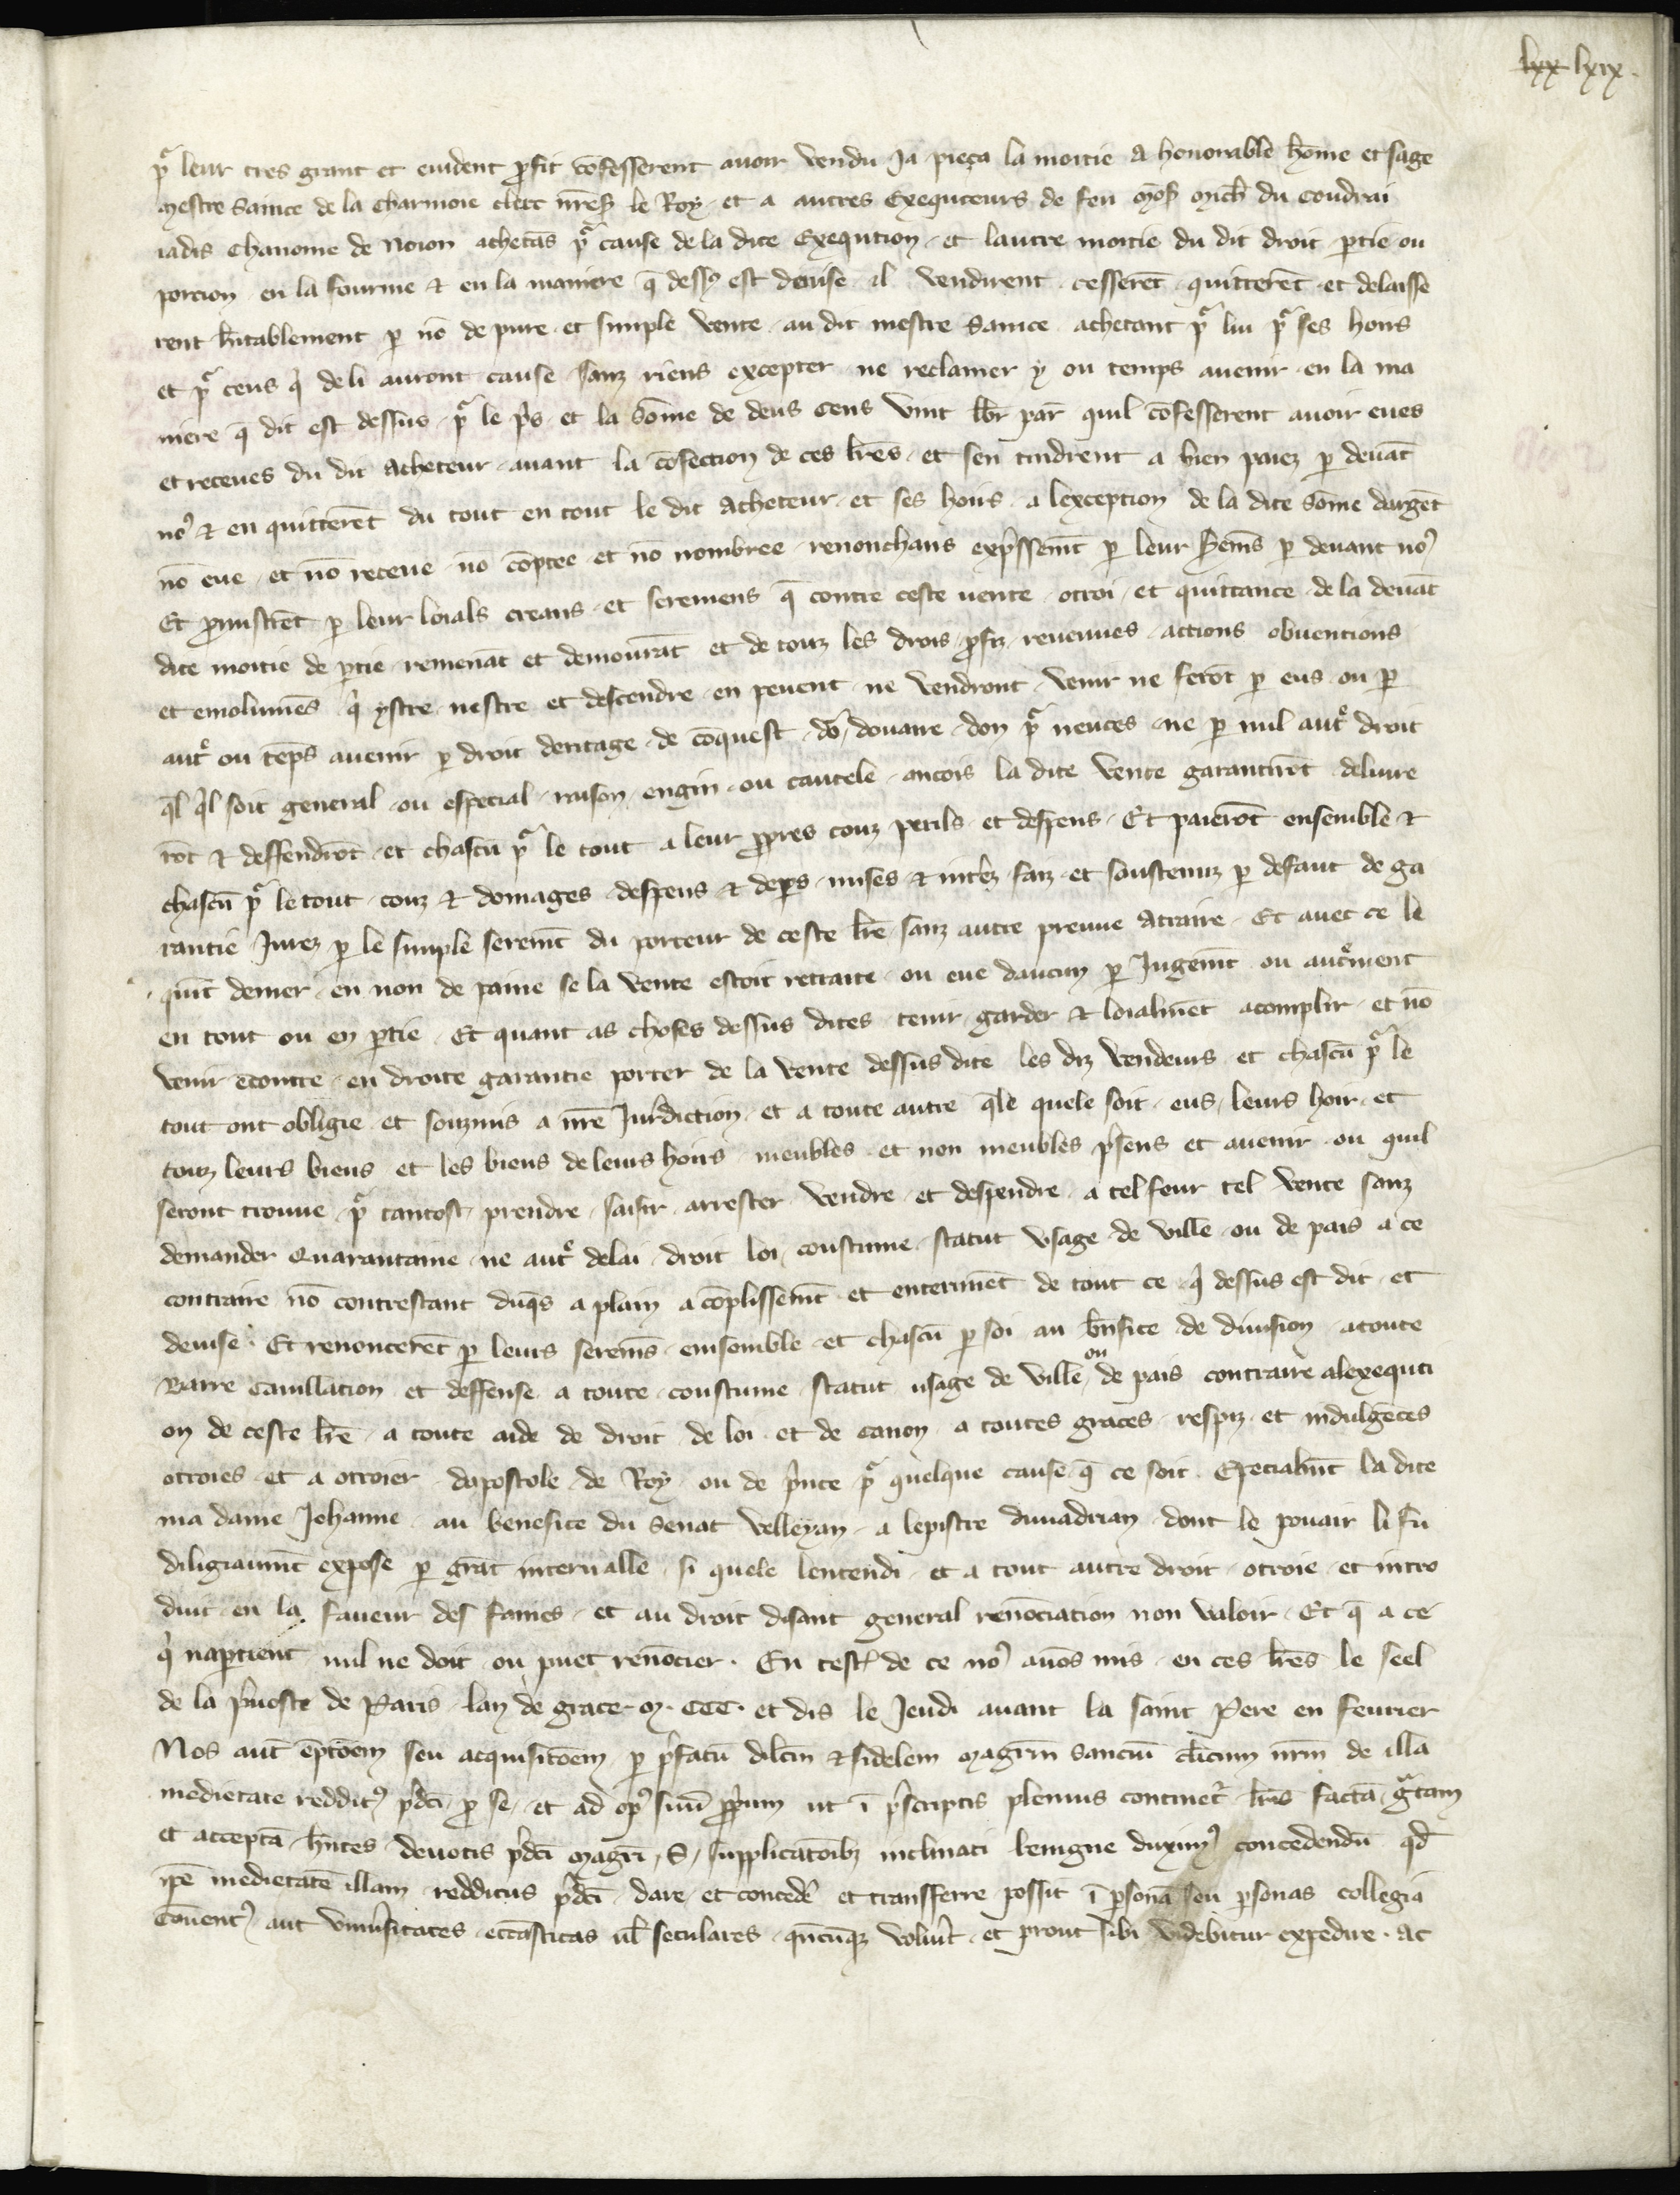 lxx lxix.
pͬ leur tres grant et euident ꝓfit cōfesserent auoir vendu ja pieça la moitie a honorable hōme et sage
Mestre Sance de la Charmoie clerc nr̄eſ le Roy . et a autres Exequteurs de feu Moſ Mich̄ du Coudrai
iadis Chanoine de Noion achetās pͬ cause de la dite Exeqution . et lautre moitie du dit droit ꝑtie ou
porcion en la fourme ⁊ en la maniere q̄ dessꝰ est deuise il vendirent cesserēt quitterēt et delaisse
rent h̄itablement ꝑ nō de pure et simple vente au dit mestre Sance achetant pͬ lui pͬ ses hoirs
et pͬ ceus qͥ de li auront cause sanz riens excepter ne reclamer y ou temps auenir en la ma
niere q̄ dit est dessus pͬ le pͥs et la sōme de deus cens vint lb̄r par̄ quil cōfesserent auoir eues
et receues du dit acheteur auant la cōfection de ces lr̄es et sen tindrent a bien paiez ꝑ deuāt
noꝰ ⁊ en quitterēt du tout en tout le dit acheteur et ses hoirs a lexception de la dite sōme dargēt
nō eue et nō receue nō cōptee et nō nombree renonchans exp̄ssemt̄ ꝑ leur seremēs ꝑ deuant noꝰ
Et ꝓmistrēt ꝑ leur loials creans et seremens q̄ contre ceste uente otroi et quittance de la deuāt
dite moitie de ꝑtie remenāt et demourāt et de touz les drois ꝓfiz reuenues actions obuentions
et emolumēs qͥ ystre nestre et descendre en peuent ne vendront venir ne ferōt ꝑ eus ou ꝑ
autͤ ou tēps auenir ꝑ droit deritage de cōquest dō douaire don pͬ neuces ne ꝑ nul autͤ droit
q̄l qͥl soit general ou especial raison engin ou cautele ancois la dite vente garantirōt deliure
rōt ⁊ deffendrōt et chascū pͬ le tout a leur ꝓpres couz perils et despens Et paierōt ensemble ⁊
chascū pͬ le tout couz ⁊ domages despens ⁊ deꝑs mises ⁊ intͤez faiz et soustenuz ꝑ defaut de ga
rantie Jurez ꝑ le simple seremt̄ du porteur de ceste lr̄e sanz autre preuue atraire Et auec ce le
quīt denier en non de paine se la vente estoit retraite ou eue daucun ꝑ Jugemt̄ ou autͤment
en tout ou en ꝑtie Et quant as choses dessus dites tenir garder ⁊ loialmēt acomplir et nō
venir ēcontre en droite garantie porter de la vente dessus dite les diz vendeurs et chascū pͬ le
tout ont obligie et souzmis a nr̄e Jurͥdiction et a toute autre q̄le quele soit eus leurs hoir et
touz leurs biens et les biens de leurs hoirs meubles et non meubles pͥsens et auenir ou quil
seront trouue pͬ tantost prendre saisir arrester vendre et despendre a tel feur tel vente sanz
demander Quarantaine ne autͤ delai droit loi coustume statut vsage de ville ou de pais a ce
contraire nō contrestant duq̄s a plain acōplissemt̄ et enterinēt de tout ce qͥ dessus est dit et
deuise Et renoncerēt ꝑ leurs seremēs ensemble et chascū ꝑ soi au bn̄fice de diuision a toute
Barre cauillation et deffense a toute coustume statut usage de ville ou de pais contraire a lexequti
on de ceste lr̄e a toute aide de droit de loi et de canon a toutes graces respiz et indulgēces
otroies et a otroier dapostole de Roy ou de pͥnce pͬ quelque cause q̄ ce soit Especialmt̄ la dite
ma dame Jehanne au benefice du senat velleyan a lepistre diuadrian dont le pouair li fu
diligiaumt̄ expose ꝑ grāt interualle si quele lentendi et a tout autre droit otroie et intro
duit en la faueur des fames et au droit disant general renōciation non valoir Et q̄ a ce
qͥ naꝑtient nul ne doit ou puet renōcier . En tesť de ce noꝰ auōs mis en ces lr̄es le seel
de la pͥuoste de Paris lan de grace M. CCC. et dis le Jeudi auant la saint Pere en feurier
Nos aut̄ ēptōem seu acquisitōem ꝑ pͥfatū dilcm̄ ⁊ fidelem Magrm̄ Sanciū cl̄icum nr̄m de illa
medietate redditꝰ pͥdcī ꝓ se et ad opꝰ suū ꝓprium ut ī pͥscriptis plenius continet᷑ lr̄is factā gͬtam
et acceptā hn̄tes deuotis pͥdcī Magrī S. supplicatōibꝫ inclinati benigne duximꝰ concedendū qd̄
ip̄e medietatē illam redditus pͥdcī dare et concedͤe et transferre possit ī ꝑsonā seu ꝑsonas collegia
Cōuentꝰ aut vniuͥsitates eccāsticas ul̄ seculares qn̄cūqꝫ voluͥt et prout sibi videbitur expedire . ac